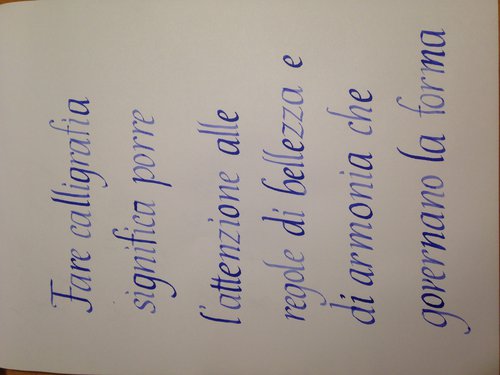 Fare calligrafia
significa porre
l'attenzione alle
regole di bellezza e
di armonia che
governano la forma